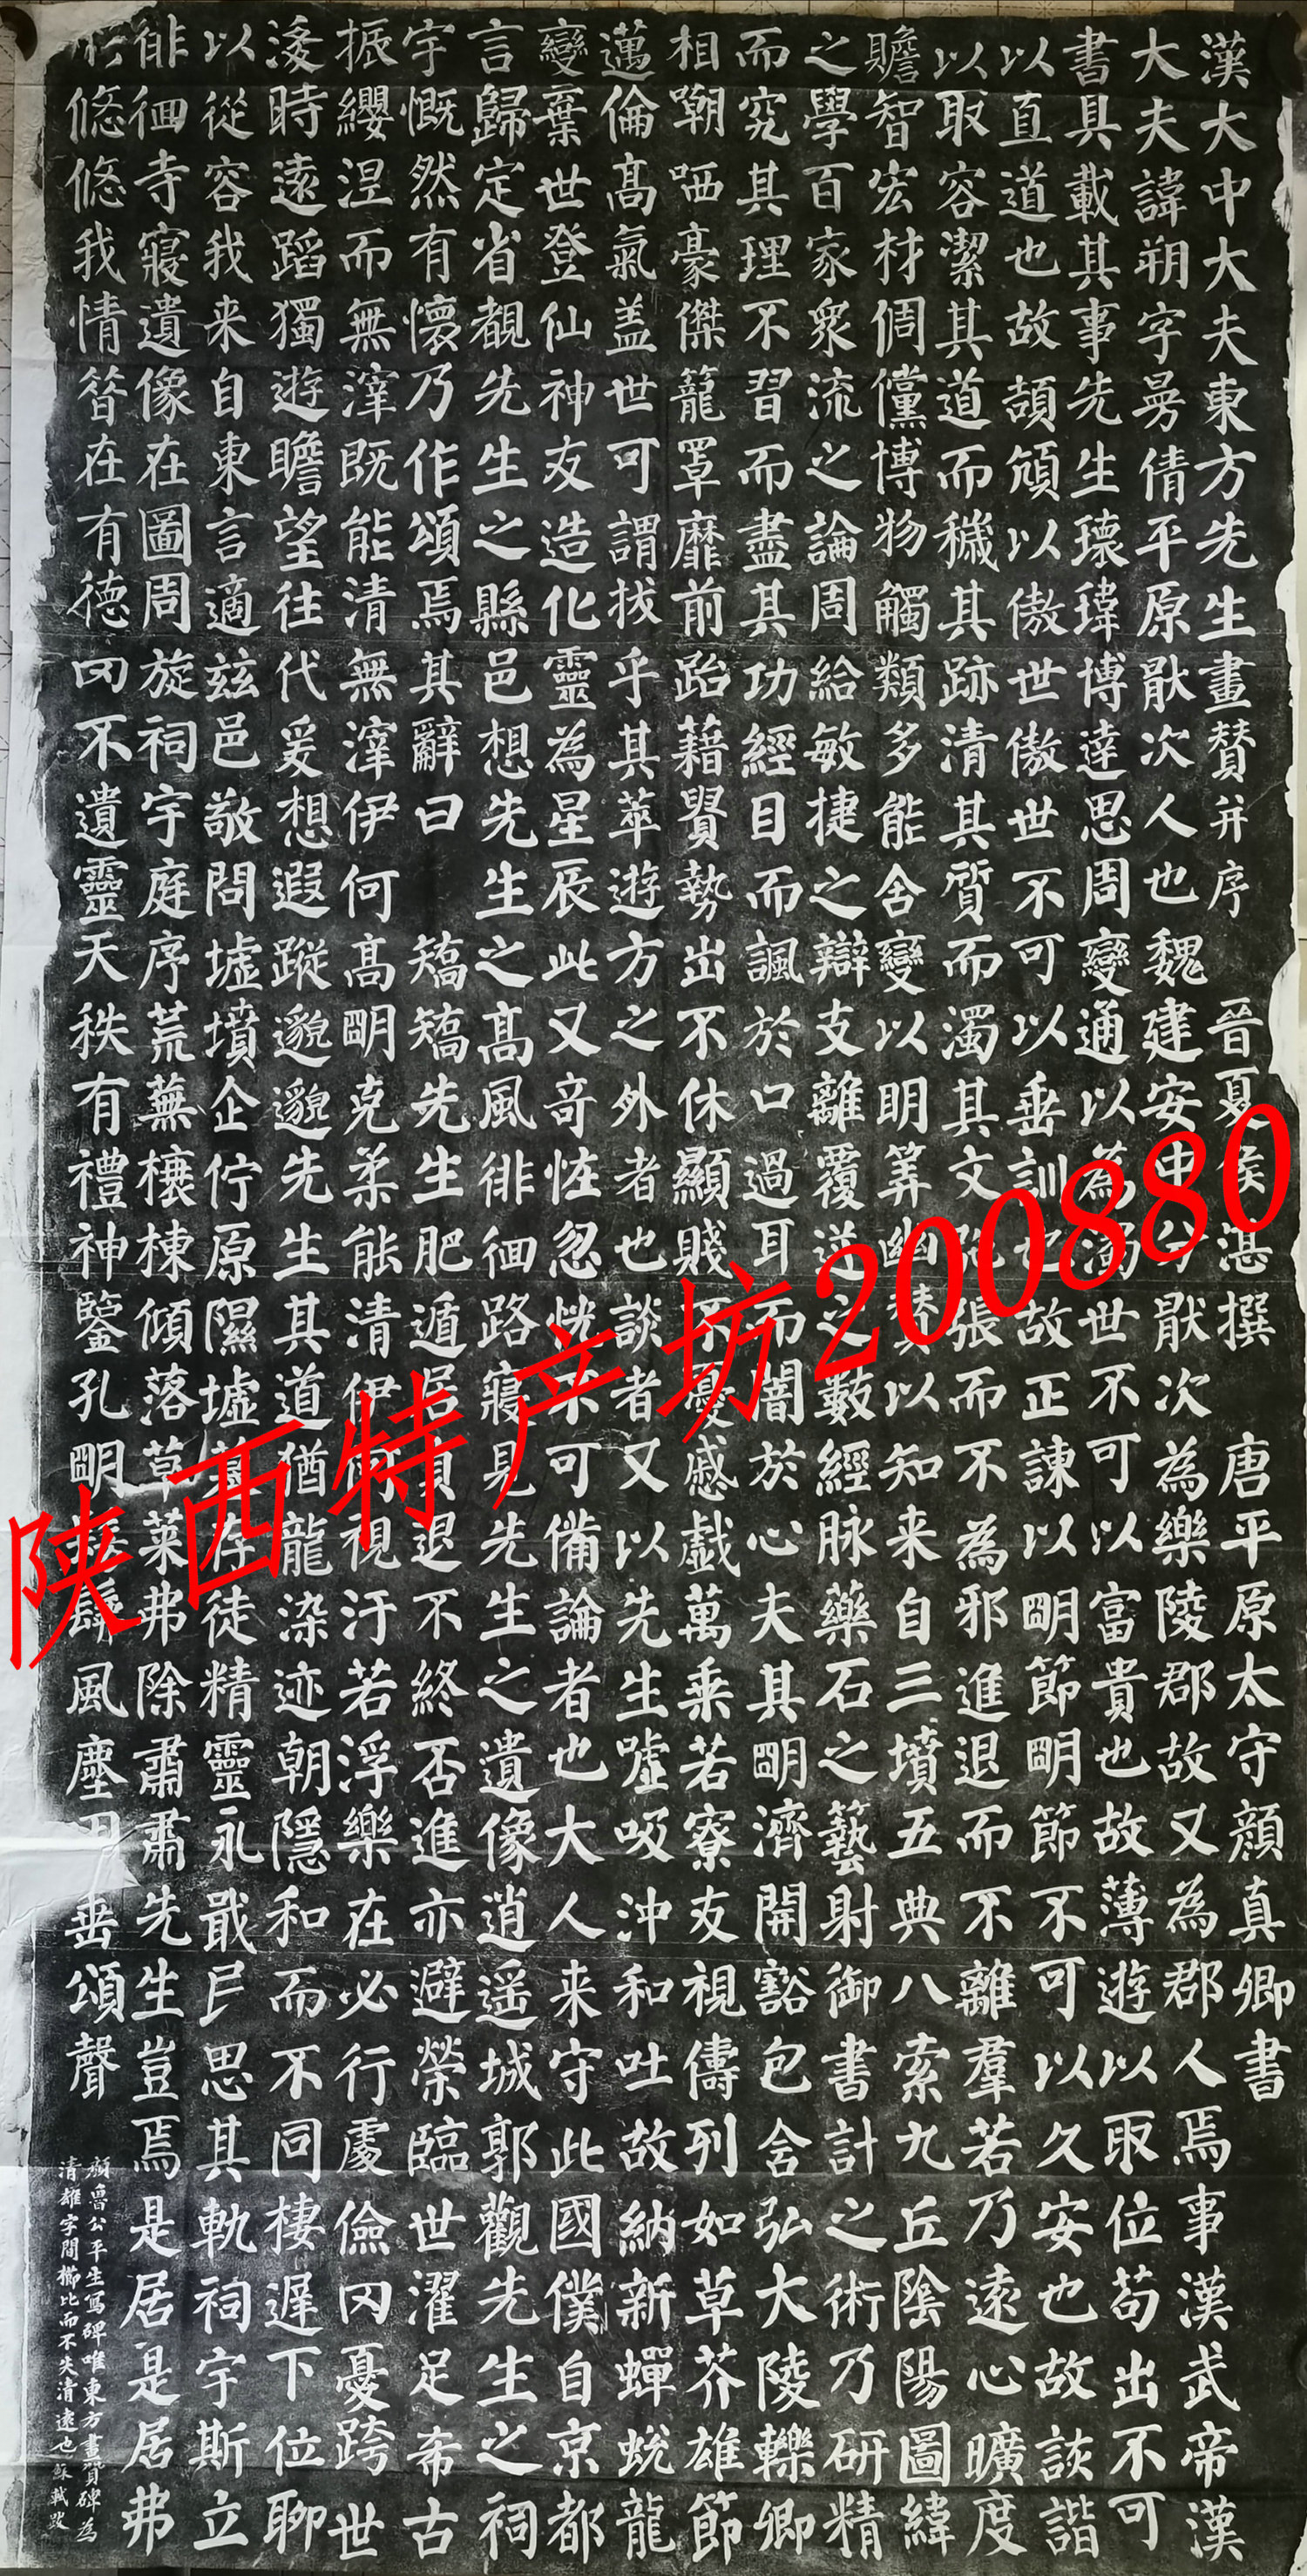 漢大中大夫東方先生畫賛并序 晉夏侯湛撰 唐平原太守顏真卿書
大夫諱朔字曼倩平原猒次人也魏建安中分猒次為樂陵郡故又為郡人焉事漢武帝漢
書具載其事先生瓌瑋博達思周變通以為濁世不可以富貴也故薄遊以取位苟出不可
以直道也故頡頏以傲世傲世不可以垂訓也故正諫以明節明節不可以久安也故詼諧
以取容潔其道而穢其跡清其質而濁其文弛張而不為邪進退而不離羣若乃遠心曠度
贍智宏材倜儻博物觸類多能合變以明筭幽賛以知来自三墳五典八索九丘陰陽圖緯
之學百家眾流之論周給敏捷之辯支離覆逆之數經脉藥石之藝射御書計之術乃研精
而究其理不習而盡其功經目而諷於口過耳而闇於心夫其明濟開豁包含弘大陵轢卿
相嘲哂豪傑籠罩靡前跆藉貴勢出不休顯賤不憂戚戲萬乗若寮友視儔列如草芥雄節
邁倫高氣盖世可謂拔乎其萃遊方之外者也談者又以先生噓吸沖和吐故納新蟬蛻龍
變棄世登仙神友造化靈為星辰此又奇怪忽恍不可備論者也大人来守此國僕自京都
言歸定省覩先生之縣邑想先生之高風徘徊路寢見先生之遺像逍遥城郭觀先生之祠
宇慨然有懷乃作頌焉其辭曰 矯矯先生肥遁居貞退不終否進亦避榮臨世濯足希古
振纓涅而無滓既能清無滓伊何高明克柔能清伊何視汙若浮樂在必行處儉罔憂跨世
淩時遠蹈獨遊瞻望往代爰想遐蹤邈邈先生其道猶龍染迹朝隱和而不同棲遲下位聊
以從容我来自東言適兹邑敬問墟墳企佇原隰墟墓存徒精靈永戢民思其軌祠宇斯立
徘徊寺寢遺像在圖周旋祠宇庭序荒蕪榱棟傾落草萊弗除肅肅先生豈焉是居是居弗
形悠悠我情昔在有德罔不遺靈天秩有禮神鑒孔明髣髴風塵用垂頌聲
顏魯公平生寫碑唯東方畫贊碑為
清雄字間櫛比而不失清遠也蘇軾跋
陕西特产坊200880